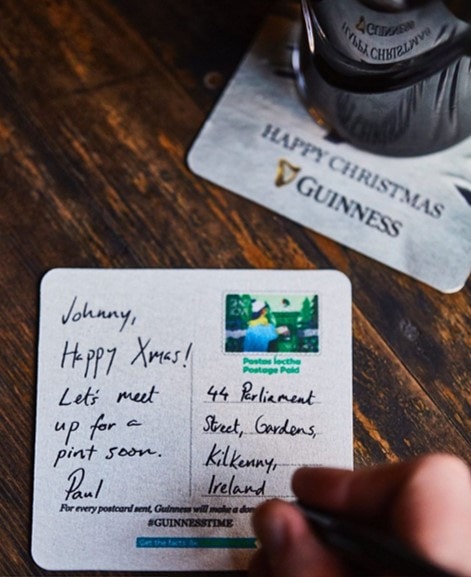 GUINNESS
HAPPY CHRISTMAS
HAPPY CHRISTMAS
GUINNESS
Johnny,
Happy Xmas!
Let's meet
up for a
pint soon.
Paul
Postas íoctha
Postage Paid
44 Parliament
Street, Gardens,
Kilkenny,
Ireland
For every postcard sent, Guinness will make a
#GUINNESSTIME
Get the facts. Be